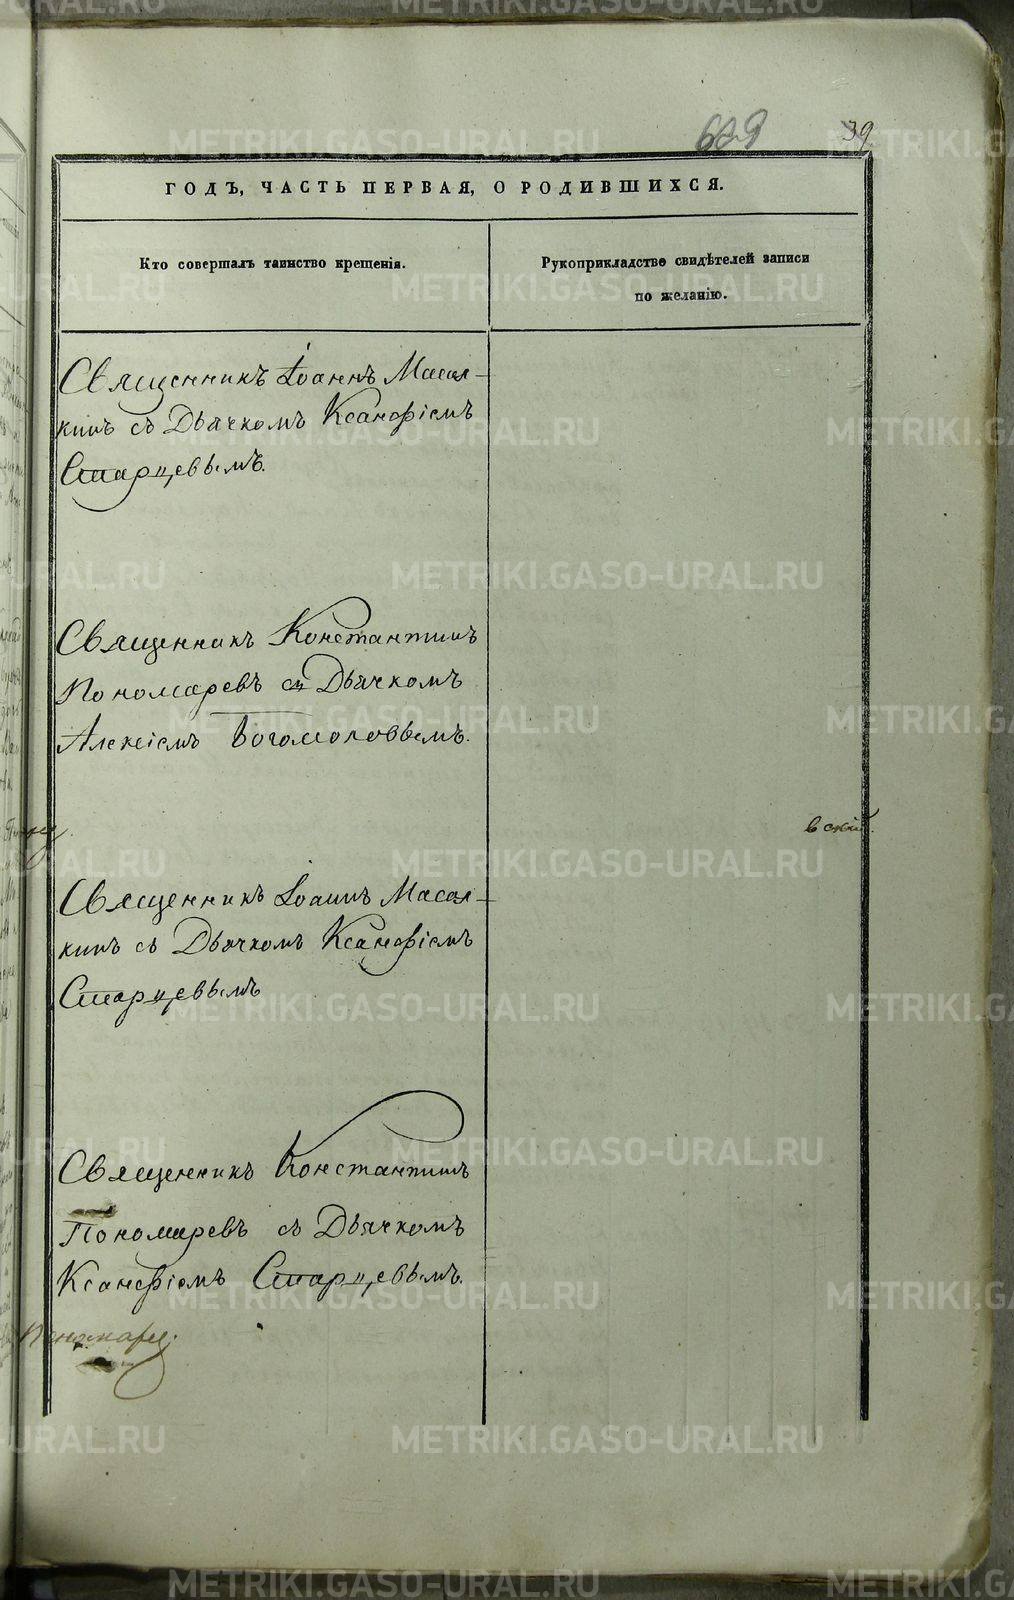 39
ГОДЪ, ЧАСТЬ ПЕРВАЯ, О РОДИВШИХСЯ.
Кто совершалъ таинство крещенія.
Рукоприкладство свидѣтелей записи
по желанію.
Священникъ Іоаннъ Масал-
кинъ съ Дьячкомъ Ксанофіемъ
Старцевымъ.
Священникъ Константинъ
Пономаревъ съ Дьячкомъ
Алексіемъ Богомоловымъ.
вскій.
Священникъ Іоаннъ Масал-
кинъ съ Дьячкомъ Ксанофіемъ
Старцевымъ
Священникъ Константинъ
Пономаревъ съ Дьячкомъ
Ксанофіемъ Старцевымъ.
METRIKI.GASO-URAL.RU